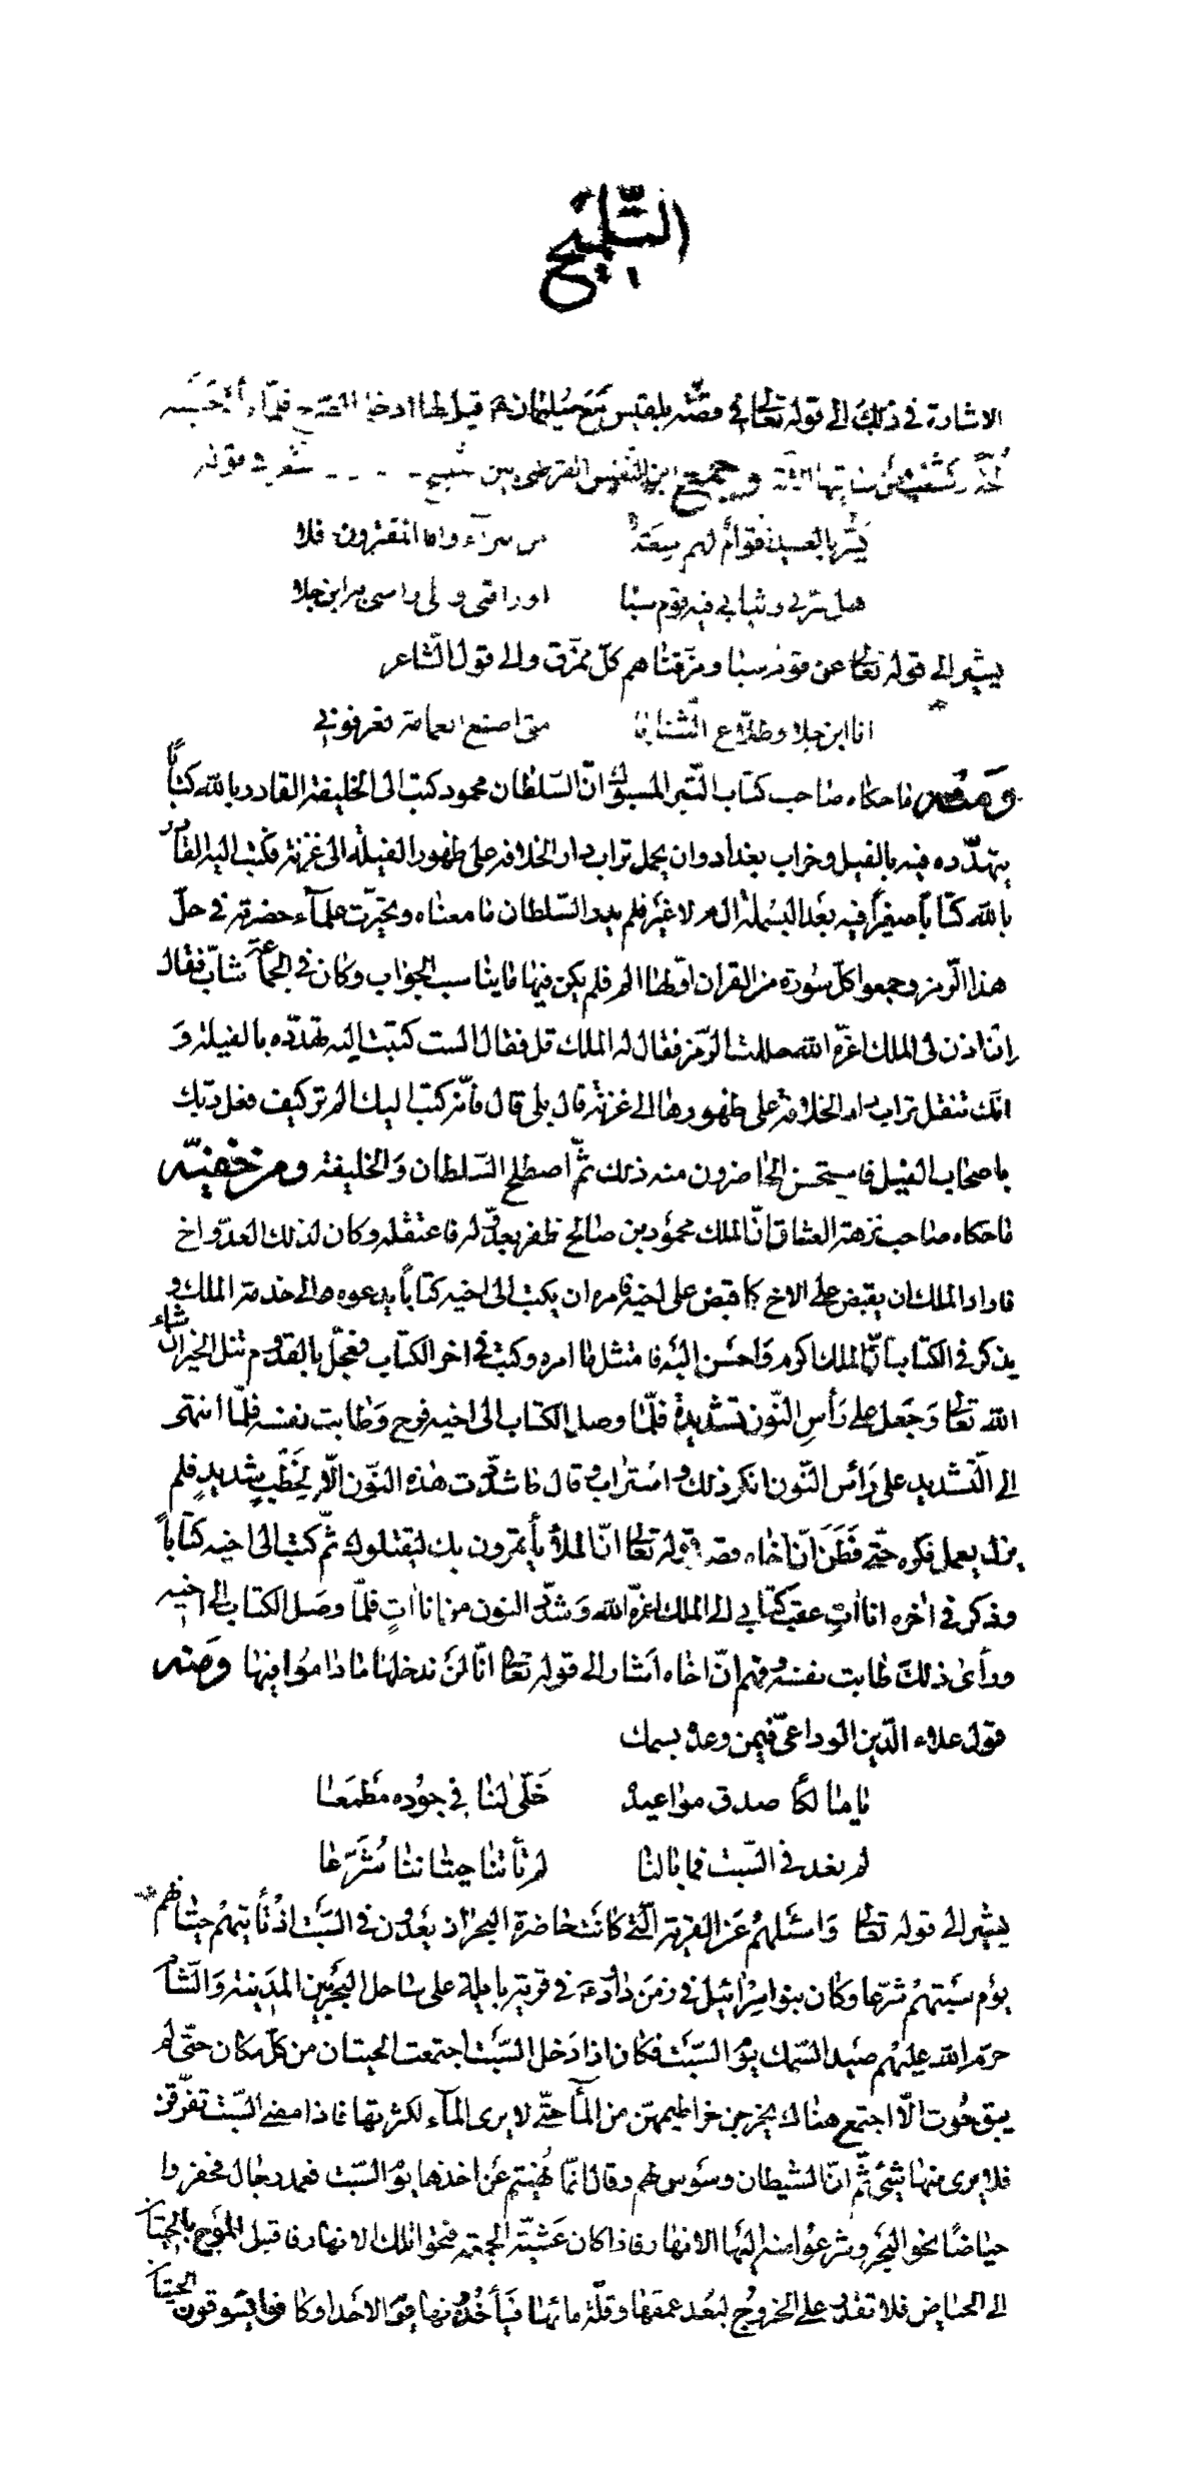 التلميح
الاشارة في ذلك الى قوله تعالى في قصّة بلقيس مع سليمان قيل لها ادخلي الصرح فلمّا رأته حسبته
لجّة وكشفت عن ساقيها وجمع ابن النفيس القرطبي بين
هل تراني وشبابي فيه قوم سبا
يشير الى قوله تعالى عن قوم سبا ومزّقناهم كلّ ممزّق والى قول الشاعر
انا ابن جلا وطلّاع الثنايا متى اضع العمامة تعرفوني
ومنه ما حكاه صاحب كتاب التبر المسبوك انّ السّلطان محمود كتب الى الخليفة القادر بالله كتاباً
يتهدّده فيه بالفيل وخراب بغداد وان يحمل تراب دار الخلافة على ظهور الفيلة الى غزنة فكتب اليه القادر
بالله كتاباً صغيراً فيه بعد البسملة الم لا غير فلم يدر السّلطان ما معناه وتحيّرت علمآء حضرته في حلّ
هذا الرّمز وجمعوا كلّ سورة من القران اوّلها الم فلم يكن فيها ما يناسب الجواب وكان في الجماعة شابّ فقال
ان اذن لى الملك اعزّه الله حللت الرّمز فقال له الملك قل فقال الست كتبت اليه تهدّده بالفيلة و
انّك تنقل تراب دار الخلافة على ظهورها الى غزنة قال بلى قال فانّه كتب اليك الم تر كيف فعل ربّك
باصحاب الفيل فاستحسن الحاضرون منه ذلك ثمّ اصطلح السّلطان والخليفة ومن خفيّه
ما حكاه صاحب نزهة العشاق انّ الملك محمود بن صالح ظفر بعدوّ له فاعتقله وكان لذلك العدوّ اخ
فاراد الملك ان يقبض على الاخ كما قبض على اخيه فامره ان يكتب الى اخيه كتاباً يدعوه الى خدمة الملك و
يذكر في الكتاب انّ الملك اكرمه واحسن اليه فامتثل ما امره وكتب في اخر الكتاب فعجّل بالقدوم تنل الخير انّ شاء
الله تعالى وجعل على رأس النّون تشديدة فلمّا وصل الكتاب الى اخيه فرح وطابت نفسه فلمّا انتهى
الى التّشديد على رأس النّون انكر ذلك واستراب وقال ما شدّدت هذه النّون الّا لخطب شديد فلم
يزل يعمل فكره حتّى فطن انّ اخاه قصد قوله تعالى انّ الملأ يأتمرون بك ليقتلوك ثمّ كتب الى اخيه كتاباً
وذكر في اخره انا اتٍ عقب كتابي الى الملك اعزّه الله وشدّد النون من انا اتٍ فلمّا وصل الكتاب الى اخيه
ورأى ذلك طابت نفسه وفهم انّ اخاه اشار الى قوله تعالى انّا لن ندخلها ما داموا فيها ومنه
قول علاء الدّين الوداعيّ فيمن وعده بسمك
يا مالكا صدق مواعيده خلّى لنا في جوده مطمعا
لم نعد في السّبت فما بالنا لم تأتنا حيتاننا شرّعا
يشير الى قوله تعالى واسئلهم عن القرية الّتي كانت حاضرة البحر اذ يعدون في السّبت اذ تأتيهم حيتانهم
يوم سبتهم شرّعا وكان بنو اسرائيل في زمن داود ع في قرية بايلة على ساحل البحر بين المدينة والشّام
حرّم الله عليهم صيد السّمك يوم السّبت فكان اذا دخل السّبت اجتمعت الحيتان من كلّ مكان حتّى لم
يبق حوت الّا اجتمع هناك يخرجن خراطيمهنّ من المآء حتّى لا يرى المآء لكثرتها فاذا مضى السّبت تفرّقن
فلا يرى منها شئ ثمّ انّ الشيطان وسوس لهم وقال انّما نهيتم عن اخذها يوم السّبت فعمد رجال فحفروا
حياضًا نحو البحر وشرعوا منه اليها الانهار فاذا كان عشيّة الجمعة فتحوا تلك الانهار فاقبل الموج بالحيتان
الى الحياض فلا تقدر على الخروج لبعد عمقها وقلّة مائها فيأخذونها يوم الاحد او كانوا يسوقون الحيتان